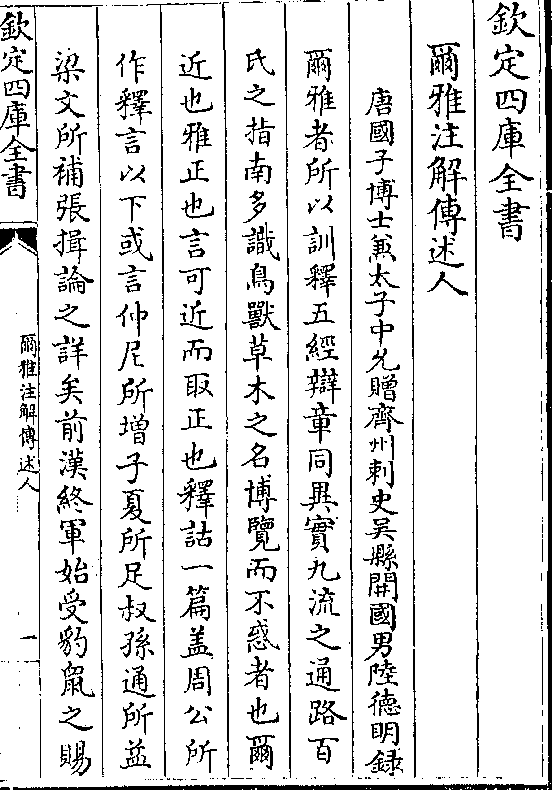 欽定四庫全書
爾雅注解傳述人
唐國子博士兼太子中允贈齊州刺史吳縣開國男陸德明録
爾雅者所以訓釋五經辯章同異實九流之通路百
氏之指南多識鳥獸草木之名博覽而不惑者也爾
近也雅正也言可近而取正也釋詁一篇盖周公所
作釋言以下或言仲尼所增子夏所足叔孫通所益
梁文所補張揖論之詳矣前漢終軍始受豹鼠之賜
欽定四庫全書
爾雅注解傳述人
一